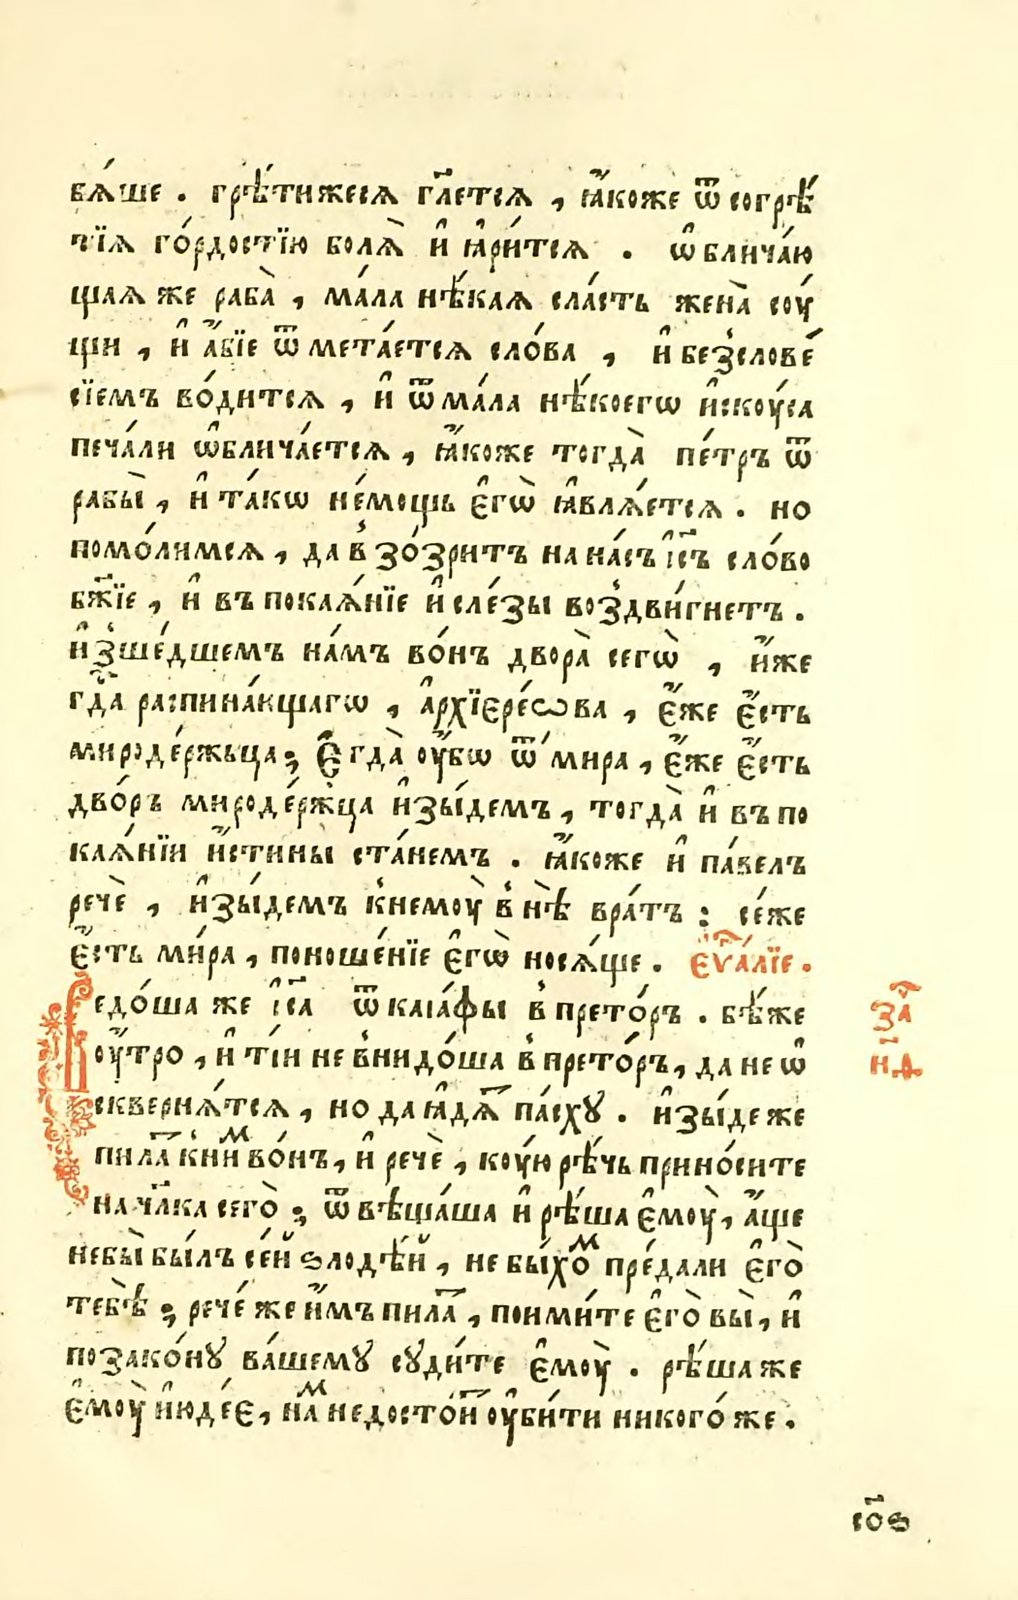 бѧ́ше . грѣ́тижесѧ гл҃етсѧ , ꙗ҆́коже ѿ согрѣ́
тїѧ го́рдостїю болѧ̀ и҆ ꙗ҆ри́тсѧ . ѡ҆блича́ю
щаѧ же раба̀ , ма́ла нѣ́каѧ сла́сть жена̀ соу́
щи , и҆ а҆́бїе ѿмета́етсѧ сло́ва , и҆ безслове́
сїемъ во́дитсѧ , и҆ ѿ ма́ла нѣ́коегѡ и҆скоу́са
печа́ли ѡ҆блича́етсѧ , ꙗ҆́коже тогда̀ пе́тръ ѿ
рабы̀ , и҆ та́кѡ не́мощь є҆гѡ̀ ꙗ҆влѧ́етсѧ . но
помо́лимсѧ , да в҆зо́зритъ на на́съ і҆с҃ъ сло́во
бж҃їе , и҆ въ покаѧ́нїе и҆ сле́зы воздви́гнетъ .
и҆зше́дшемъ на́мъ во́нъ двора̀ сегѡ̀ , и҆́же
гд҃а распина́ющагѡ , а҆рхїєре́ѡва , є҆́же є҆́сть
мироде́ржьца ; Є҆гда̀ оу҆́бѡ ѿ мира , є҆́же є҆́сть
дво́ръ мироде́ржца и҆зы́демъ , тогда̀ и҆ въ по
каѧ́нїи и҆́стины ста́немъ . ꙗ҆́коже и҆ па́велъ
речѐ , и҆зы́демъ к҆немоу̀ в҆нѣ̀ вра́тъ : се́же
є҆́сть ми́ра , поноше́нїе є҆гѡ̀ носѧ́ще . є҆ѵⷢ҇а́лїе .
Ведо́ша же і҆с҃а ѿ каїа́фы в҆прето́ръ . бѣ́же
оу҆́тро , и҆ ті́и не в҆нидо́ша в҆прето́ръ , да не ѡ҆
сквернѧ́тсѧ , но да ꙗ҆дѧ́т па́схꙋ . и҆зы́де же
пила́т к҆ни́м во́нъ , и҆ речѐ , коу́ю рѣ́чь прино́сите
на чл҃ка сего̀ ; ѿвѣща́ша и҆ рѣ́ша є҆моу̀ , а҆́ще
небы̀ бы́лъ се́й ѕлодѣ́й , не бы́хом пре́дали є҆го̀
тебѣ̀ ; рече́ же и҆́мъ пила́т , поими́те є҆го̀ вы̀ , и҆
позако́нꙋ ва́шемꙋ сꙋди́те є҆моу̀ . рѣ́ша же
є҆моу̀ и҆юде́є , на́м недосто́ит оу҆би́ти никого́ же .
за҃
н҃д
со҃ѕ